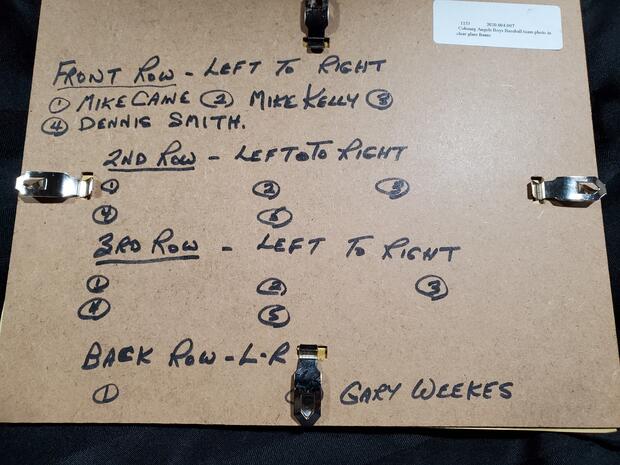 1153 2020.004.007
Cobourg Angels Boys Baseball team photo in
clear glass frame
FRONT ROW - LEFT TO RIGHT
① MIKE CANE ② MIKE KELLY ③
④ DENNIS SMITH.
2ND ROW - LEFT TO RIGHT
① ② ③
④ ⑤
3RD ROW - LEFT TO RIGHT
① ② ③
④ ⑤
BACK ROW - L-R
① GARY WEEKES